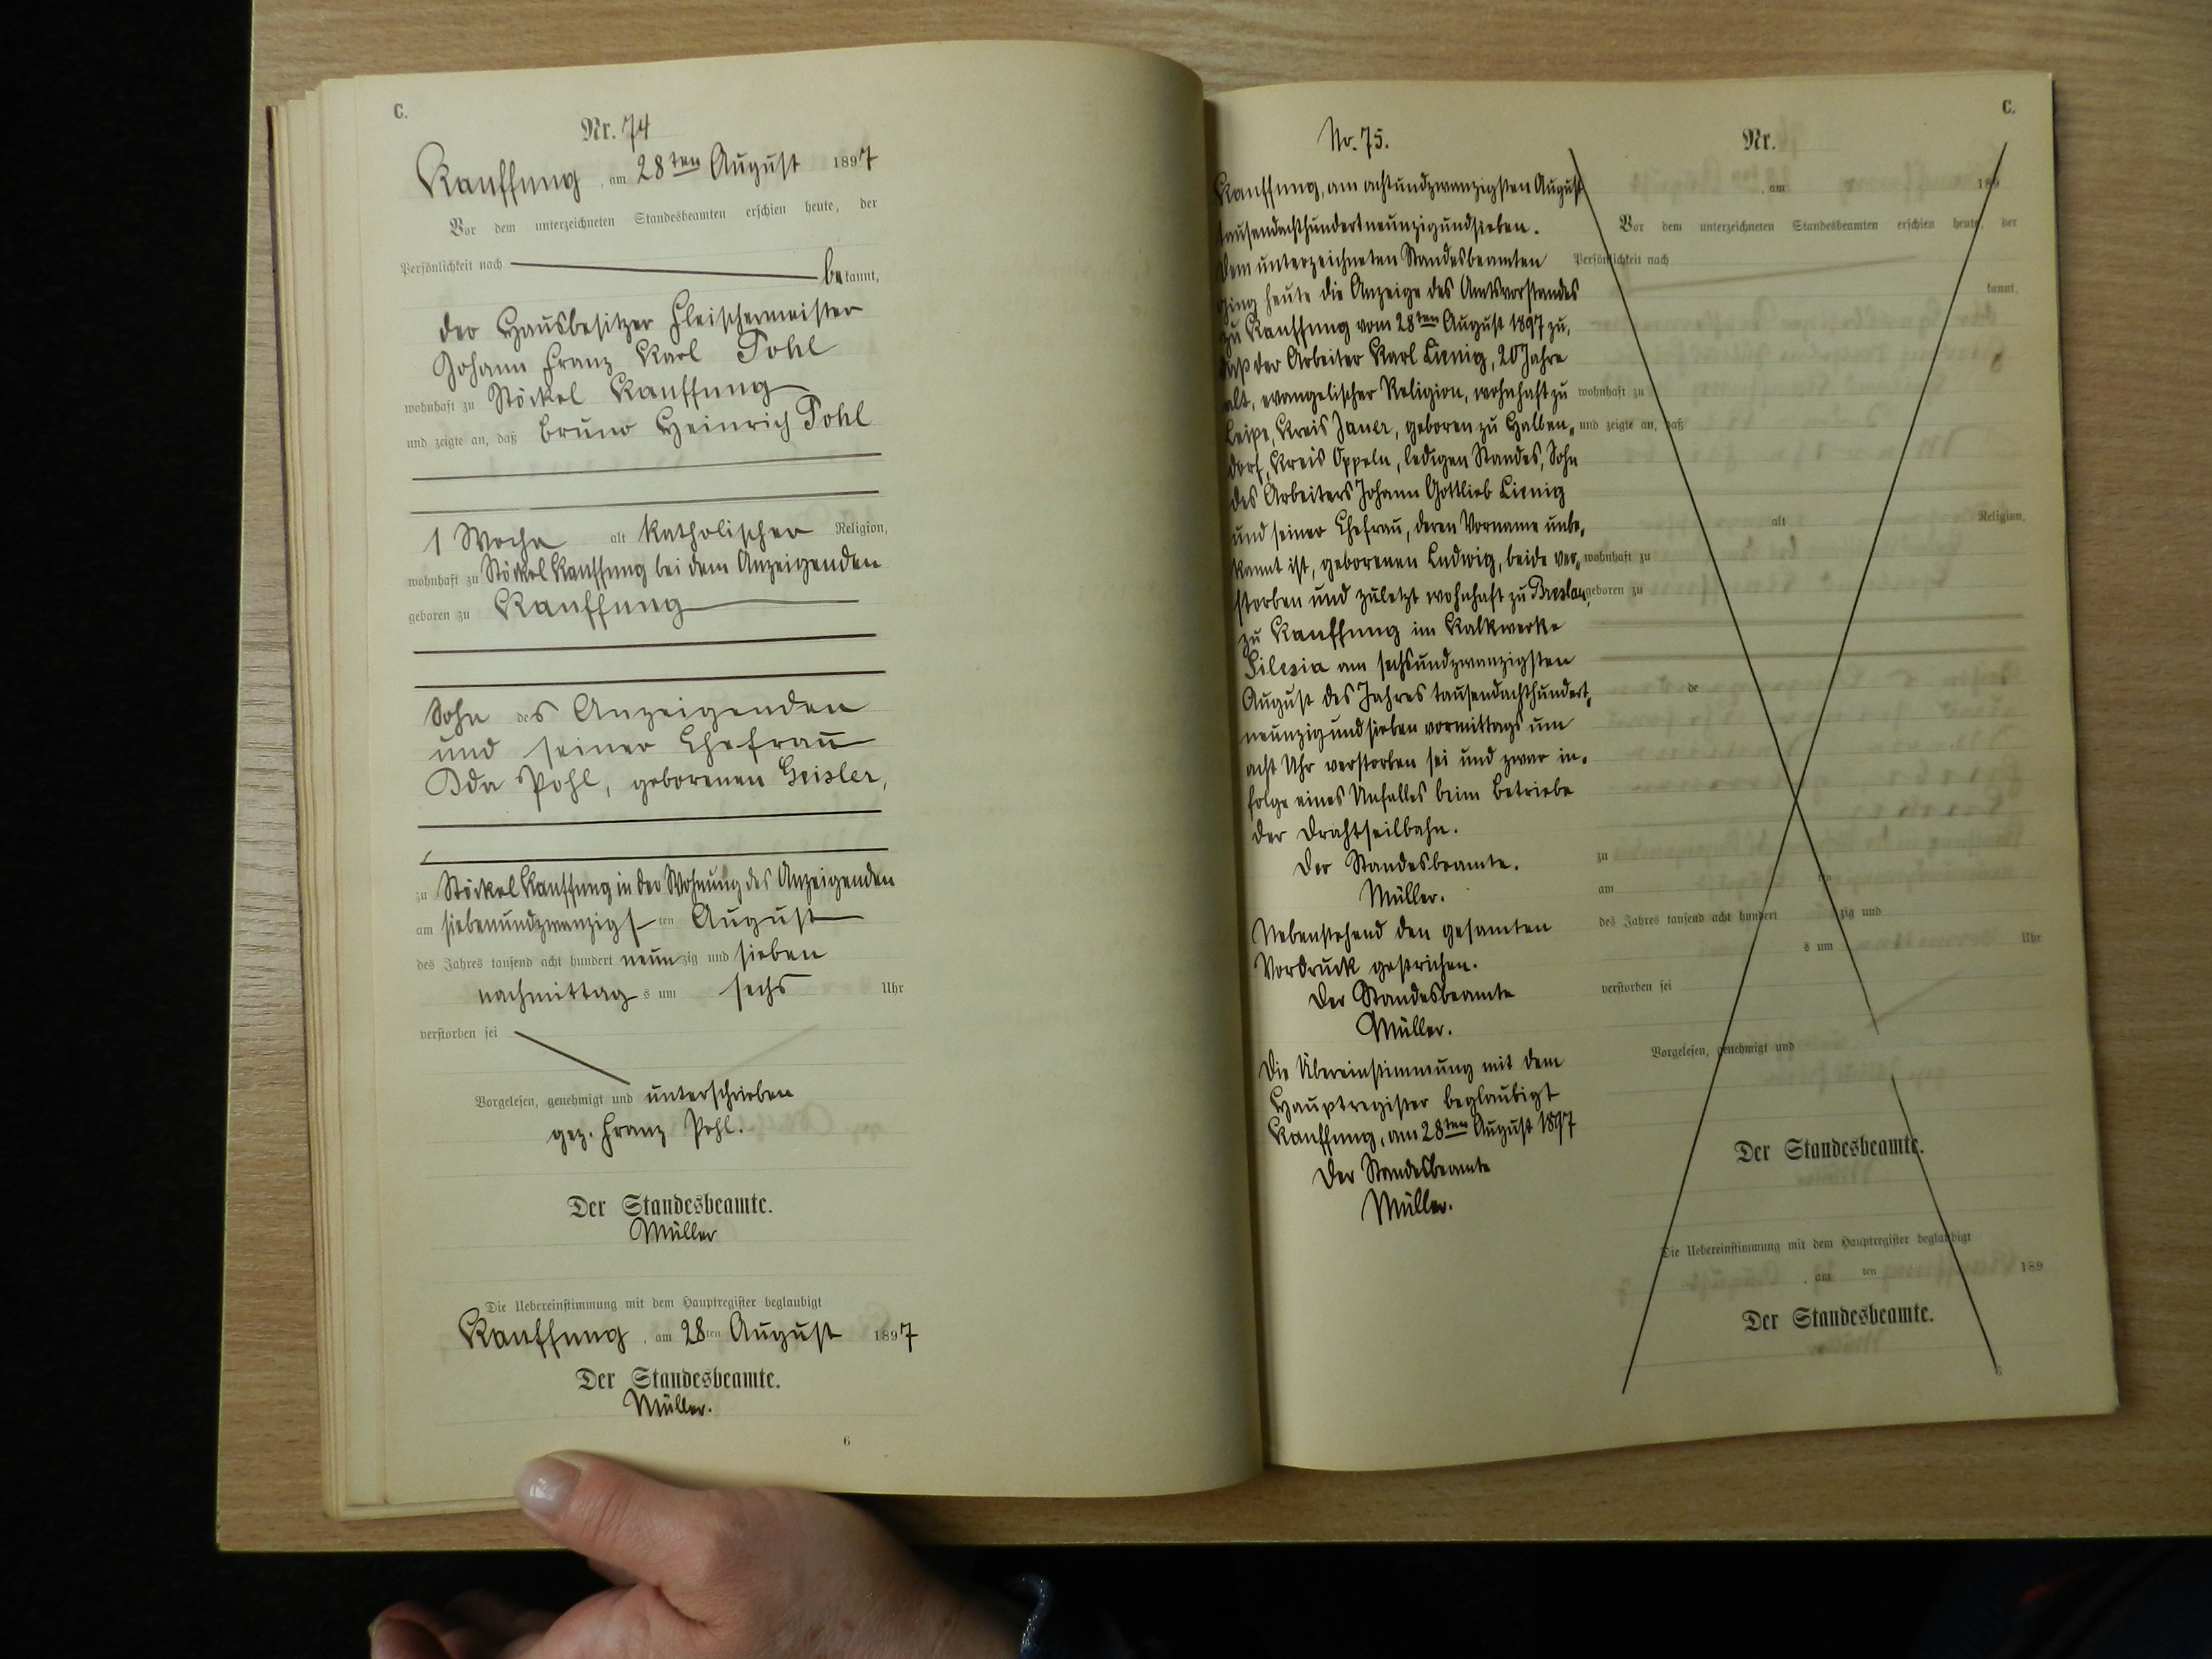 C.
Nr. 74
Kauffung, am 28ten August 1897
Vor dem unterzeichneten Standesbeamten erschien heute, der
Persönlichkeit nach bekannt,
der Hausbesitzer Fleischermeister
Johann Franz Karl Pohl
wohnhaft zu Stöckel Kauffung
und zeigte an, daß Bruno Heinrich Pohl
1 Woche alt katholischer Religion,
wohnhaft zu Stöckel Kauffung bei dem Anzeigenden
geboren zu Kauffung
Sohn des Anzeigenden
und seiner Ehefrau
Ida Pohl, geborenen Geisler,
zu Stöckel Kauffung in der Wohnung des Anzeigenden
am siebenundzwanzigsten August
des Jahres tausend acht hundert neunzig und sieben
nachmittags um sechs Uhr
verstorben sei
Vorgelesen, genehmigt und unterschrieben
gez. Franz Pohl.
Der Standesbeamte.
Müller
Die Uebereinstimmung mit dem Hauptregister beglaubigt
Kauffung, am 28ten August 1897
Der Standesbeamte.
Müller.
6
No. 75.
Kauffung, am achtundzwanzigsten August
tausendachthundertneunzigundsieben.
Dem unterzeichneten Standesbeamten
ging heute die Anzeige des Amtsvorstandes
zu Kauffung vom 28ten August 1897 zu,
daß der Arbeiter Karl Lienig, 20 Jahre
alt, evangelischer Religion, wohnhaft zu
Leipe, Kreis Jauer, geboren zu Halben-
dorf, Kreis Oppeln, ledigen Standes, Sohn
des Arbeiters Johann Gottlieb Lienig
und seiner Ehefrau, deren Vorname unbe-
kannt ist, geborenen Ludwig, beide ver-
storben und zuletzt wohnhaft zu Breslau,
zu Kauffung im Kalkwerke
Silesia am sechsundzwanzigsten
August des Jahres tausendachthundert-
neunzigundsieben vormittags um
acht Uhr verstorben sei und zwar in-
folge eines Unfalles beim Betriebe
der Drahtseilbahn.
Der Standesbeamte.
Müller.
Nebenstehend den gesamten
Vordruck gestrichen.
Der Standesbeamte
Müller.
Die Übereinstimmung mit dem
Hauptregister beglaubigt
Kauffung, am 28ten August 1897
Der Standesbeamte
Müller.
C.
Nr.
am 189
Vor dem unterzeichneten Standesbeamten erschien heute, der
Persönlichkeit nach
kannt,
wohnhaft zu
und zeigte an, daß
alt Religion,
wohnhaft zu
geboren zu
de
zu
am ten
des Jahres tausend acht hundert zig und
s um Uhr
verstorben sei
Vorgelesen, genehmigt und
Der Standesbeamte.
Die Uebereinstimmung mit dem Hauptregister beglaubigt
am ten 189
Der Standesbeamte.